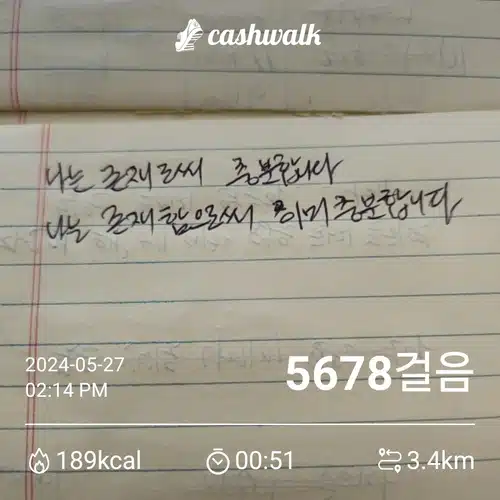 cashwalk
나는 존재로써 충분합니다
나는 존재함으로써 이미 충분합니다
2024-05-27
02:14 PM
5678걸음
189kcal
00:51
3.4km